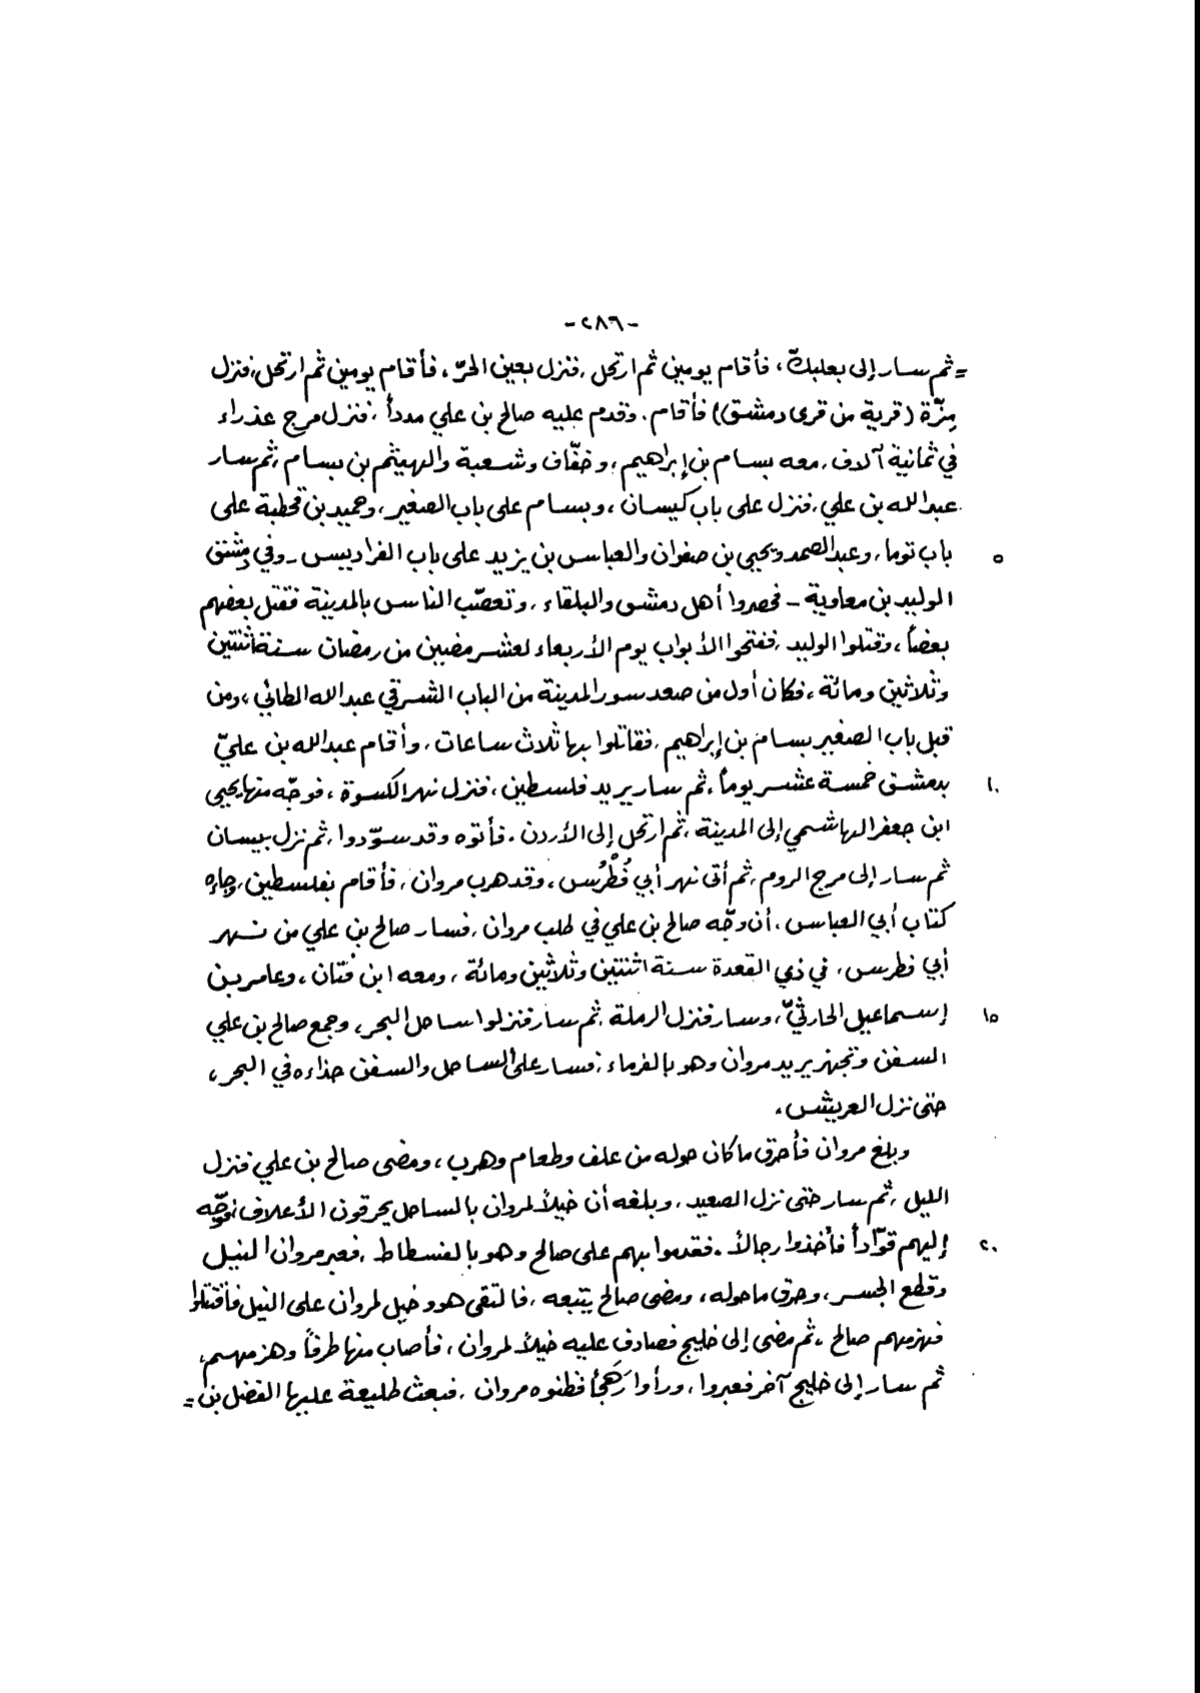 -٢٨٦-
= ثم سار إلى بعلبكّ، فأقام يومين ثم ارتحل، فنزل بعين الحرّ، فأقام يومين ثم ارتحل، فنزل
مِزّة (قرية من قرى دمشق)) فأقام. وقدم عليه صالح بن علي مدداً، فنزل مرج عذراء
في ثمانية آلاف، معه بسام بن إبراهيم، وخفّاف وشعبة والهيثم بن بسام، ثم سار
عبد الله بن علي، فنزل على باب كيسان، وبسام على باب الصغير، وحميد بن قحطبة على
٥ باب توما، وعبد الصمد ويحيى بن صفوان والعباس بن يزيد على باب الفراديس - وفي دمشق
الوليد بن معاوية - فحصروا أهل دمشق والبلقاء، وتعصّب الناس بالمدينة فقتل بعضهم
بعضاً، وقتلوا الوليد، ففتحوا الأبواب يوم الأربعاء لعشر مضين من رمضان سنة اثنتين
وثلاثين ومائة، فكان أول من صعد سور المدينة من الباب الشرقي عبد الله الطائي، ومن
قبل باب الصغير بسام بن إبراهيم، فقاتلوا بها ثلاث ساعات، وأقام عبد الله بن عليّ
١٠ بدمشق خمسة عشر يوماً، ثم سار يريد فلسطين، فنزل نهر الكسوة، فوجّه منها يحيى
ابن جعفر الهاشمي إلى المدينة، ثم ارتحل إلى الأردن. فأتوه وقد سوّدوا، ثم نزل بيسان
ثم سار إلى مرج الروم، ثم أتى نهر أبي فُطْرُس، وقد هرب مروان، فأقام بفلسطين، وجاءه
كتاب أبي العباس، أن وجّه صالح بن علي في طلب مروان، فسار صالح بن علي من نهر
أبي فطرس، في ذي القعدة سنة اثنتين وثلاثين ومائة، ومعه ابن فتّان، وعامر بن
١٥ إسماعيل الحارثيّ، وسار فنزل الرملة، ثم سار فنزلوا ساحل البحر، وجمع صالح بن علي
السفن وتجهز يريد مروان وهو بالفرماء، فسار على الساحل والسفن حذاءه في البحر،
حتى نزل العريش.
وبلغ مروان فأحرق ما كان حوله من علف وطعام وهرب، ومضى صالح بن علي فنزل
النيل، ثم سار حتى نزل الصعيد، وبلغه أن خيلاً لمروان بالساحل يحرقون الأعلاف فوجّه
٢٠ إليهم قوّاداً فأخذوا رجالاً. فقدموا بهم على صالح وهو بالفسطاط، فعبر مروان النيل
وقطع الجسر، وحرق ما حوله، ومضى صالح يتبعه، فالتقى هو وخيل لمروان على النيل فاقتتلوا
فهزمهم صالح، ثم مضى إلى خليج فصادف عليه خيلاً لمروان، فأصاب منها طرفاً وهزمهم،
ثم سار إلى خليج آخر فعبروا، ورأوا رَهَجاً فظنوه مروان، فبعث طليعة عليها الفضل بن =